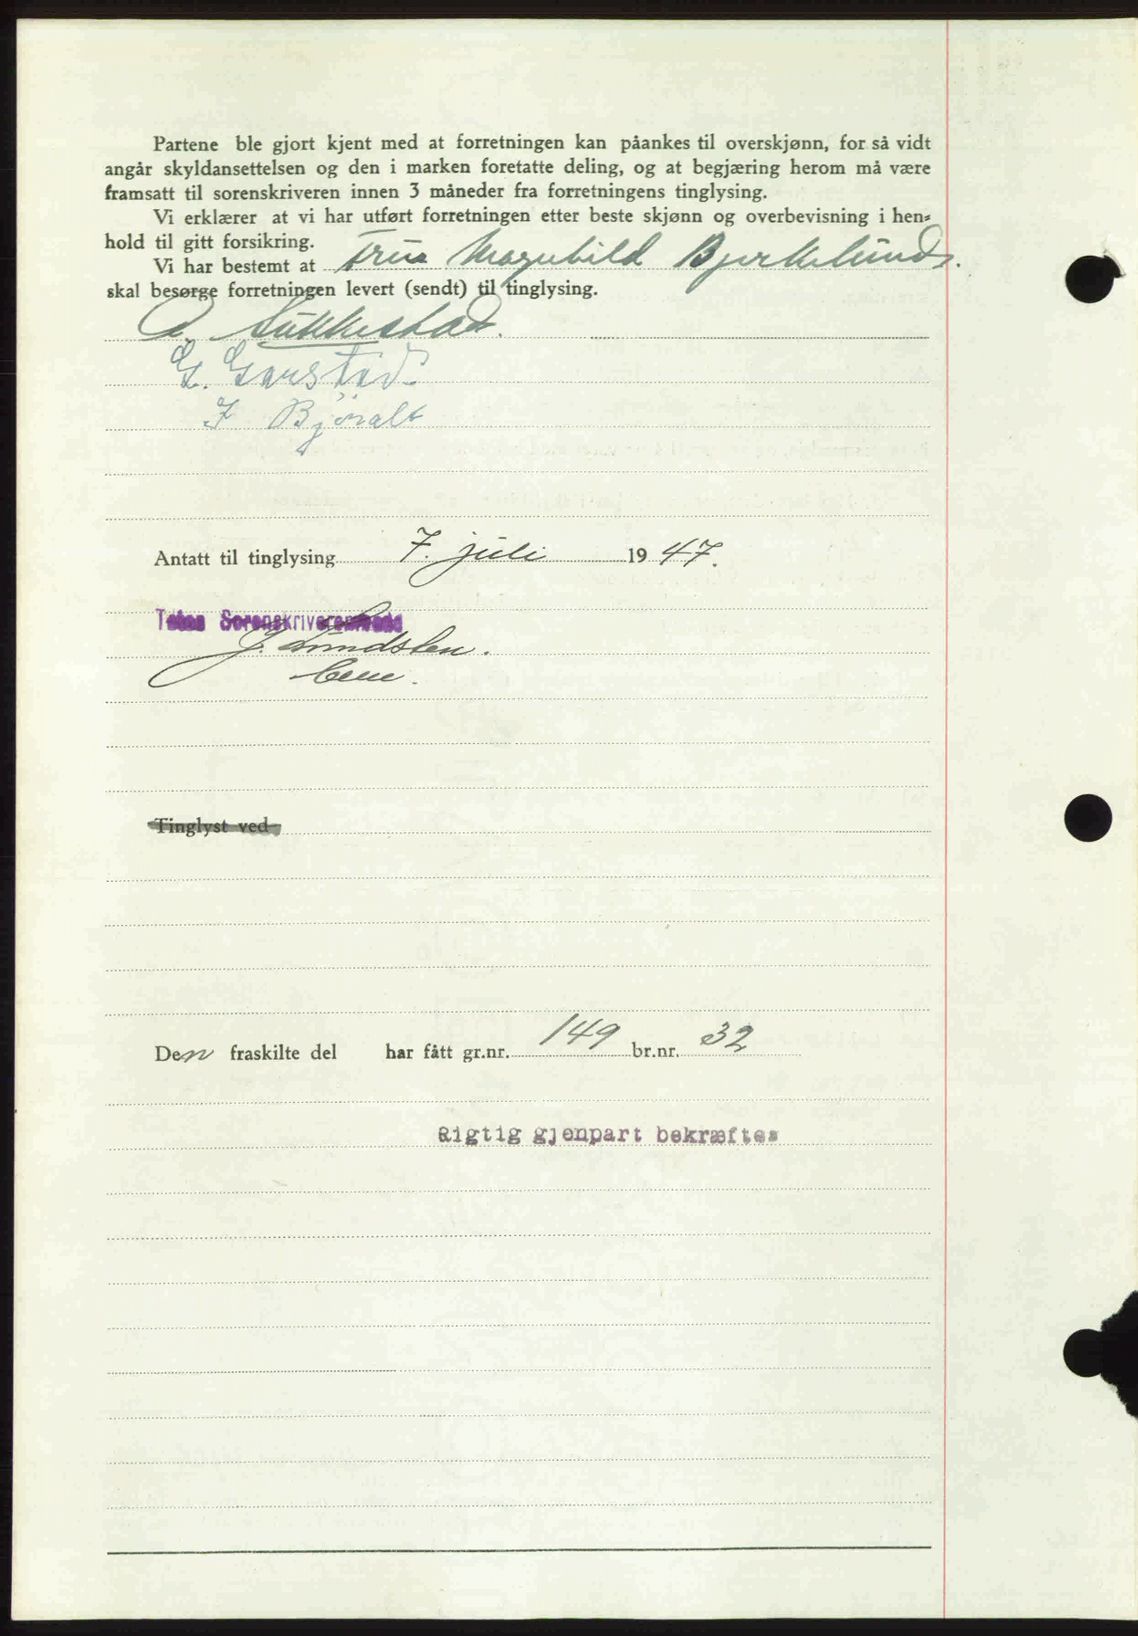 Partene ble gjort kjent med at forretningen kan påankes til overskjønn, for så vidt
angår skyldansettelsen og den i marken foretatte deling, og at begjæring herom må være
framsatt til sorenskriveren innen 3 måneder fra forretningens tinglysing.
Vi erklærer at vi har utført forretningen etter beste skjønn og overbevisning i hen-
hold til gitt forsikring.
Vi har bestemt at Frue Magnhild Bjerkelund
skal besørge forretningen levert (sendt) til tinglysing.
Sukkestad.
G. Garstad.
Antatt til tinglysing 7. juli 1947.
Toten Sorenskriverembede
J. Lundsten.
Tinglyst ved
Den fraskilte del har fått gr.nr. 149 br.nr. 32
Rigtig gjenpart bekræftes